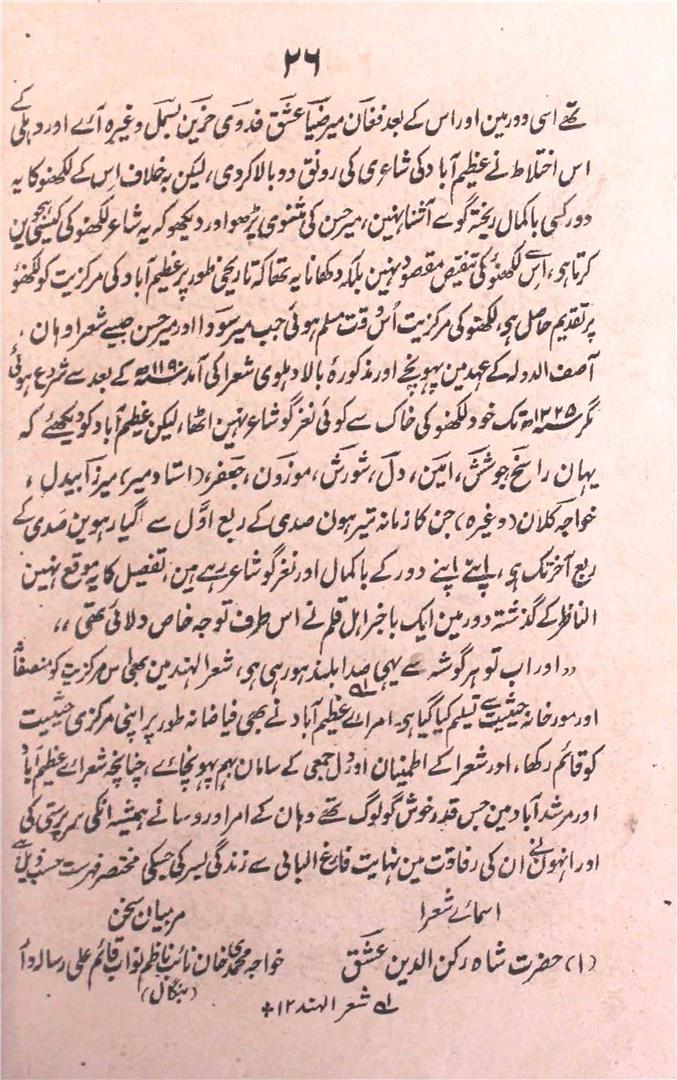 ۲۶
تھے اسی دور مین اور اس کے بعد فغان میر ضیا عشق فدوی حزین بسمل وغیرہ آے اور دہلی کے
اس اختلاط نے عظیم آباد کی شاعری کی رونق دوبالا کردی، لیکن بخلاف اس کے لکھنو کا یہ
دور کسی باکمال ریختہ گو سے آشنا نہین، میر حسن کی مثنوی پڑھو اور دیکھو کہ یہ شاعر لکھنو کی کیسی ہجوین
کرتا ہو، اس سے لکھنؤ کی تنقیص مقصود نہین بلکہ دکھانا یہ تھا کہ تاریخی طور پر عظیم آباد کی مرکزیت کو لکھنؤ
پر تقدیم حاصل ہی، لکھنو کی مرکزیت اُس وقت مسلم ہوئی جب میر سودا اور میر حسن جیسے شعرا وہان
آصف الدولہ کے عہد مین پہونچے اور مذکورۂ بالا دہلوی شعرا کی آمد سنہ ۱۱۹۰ھ کے بعد سے شروع ہوئی
مگر سنہ ۱۲۲۵ھ تک خود لکھنو کی خاک سے کوئی نغز گو شاعر نہین اٹھا، لیکن عظیم آباد کو دیکھئے کہ
یہان راسخ، جوشش، امین، دل، شورش، موزون، جعفر، (استاد میر) میرزا بیدل،
خواجہ کلان (وغیرہ) جن کا زمانہ تیرہون صدی کے ربع اوّل سے گیارہوین صدی کے
ربع آخر تک ہی، اپنے اپنے دور کے باکمال اور نغز گو شاعر رہے ہین، تفصیل کا یہ موقع نہین
الناظر کے گذشتہ دور مین ایک باخبر اہل قلم نے اس طرف توجہ خاص دلائی تھی ،،
،، اور اب تو ہر گوشہ سے یہی صدا بلند ہو رہی ہی، شعر الہند مین بھی اس مرکزیت کو منصفانہ
اور مورخانہ حیثیت سے تسلیم کیا گیا ہی۔ امراے عظیم آباد نے بھی فیاضانہ طور پر اپنی مرکزی حیثیت
کو قائم رکھا، اور شعرا کے اطمینان اور دل جمعی کے سامان بہم پہونچاے، چنانچہ شعراے عظیم آباد
اور مرشد آباد مین جس قدر خوش گو لوگ تھے وہان کے امرا و روسا نے ہمیشہ انکی سرپرستی کی
اور انہون نے ان کی رفاقت مین نہایت فارغ البالی سے زندگی بسر کی جسکی مختصر فہرست حسب ذیل ہے
اسمائے شعرا مربیان سخن
(۱) حضرت شاہ رکن الدین عشق خواجہ محمدی خان نائب ناظم نواب قائم علی رسالہ دار
(بنگال)
لے شعر الہند ۱۲